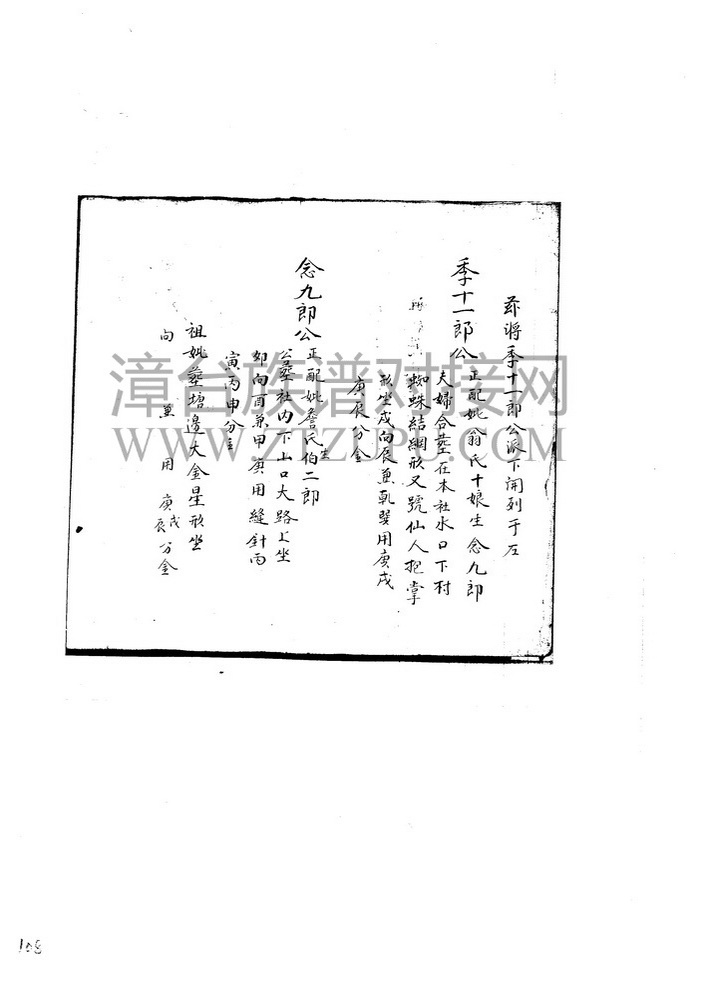 茲將季十一郎公派下開列于左
季十一郎公
正配妣翁氏十娘生 念九郎
夫婦合塟在本社水口下村
蜘蛛結網形又號仙人抱掌
形坐戌向辰兼乾巽用庚戌
庚辰分金
念九郎公
正配妣詹氏生伯二郎
公塟社内下山口大路上坐
卯向酉兼甲庚用縫針丙
寅丙申分
祖妣塟塘邊大金星形坐
向 兼 用 庚戌辰分金
漳台族谱对接网
WWW.ZTZUPU.COM
108